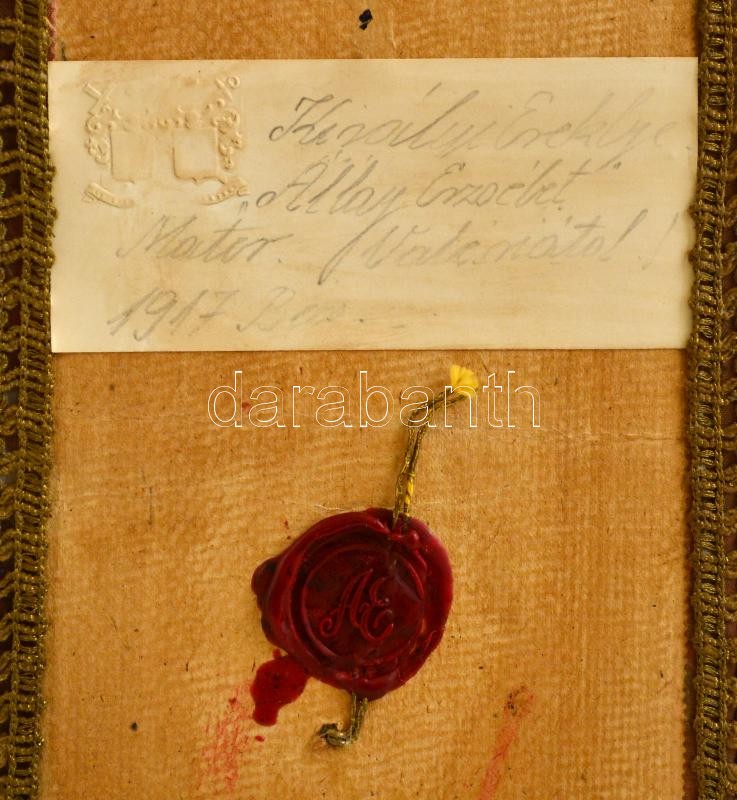 Királyi Ereklye
„Állay Erzsébet"
Mater.
1917
darabanth
AE